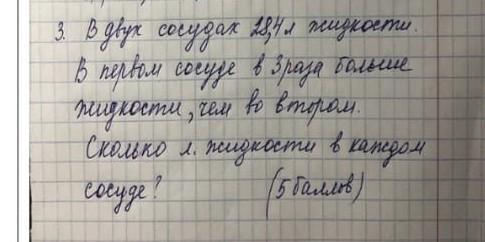 3. В двух сосудах 28,4 л жидкости.
В первом сосуде в 3 раза больше
жидкости, чем во втором.
Сколько л. жидкости в каждом
сосуде? (5 баллов)